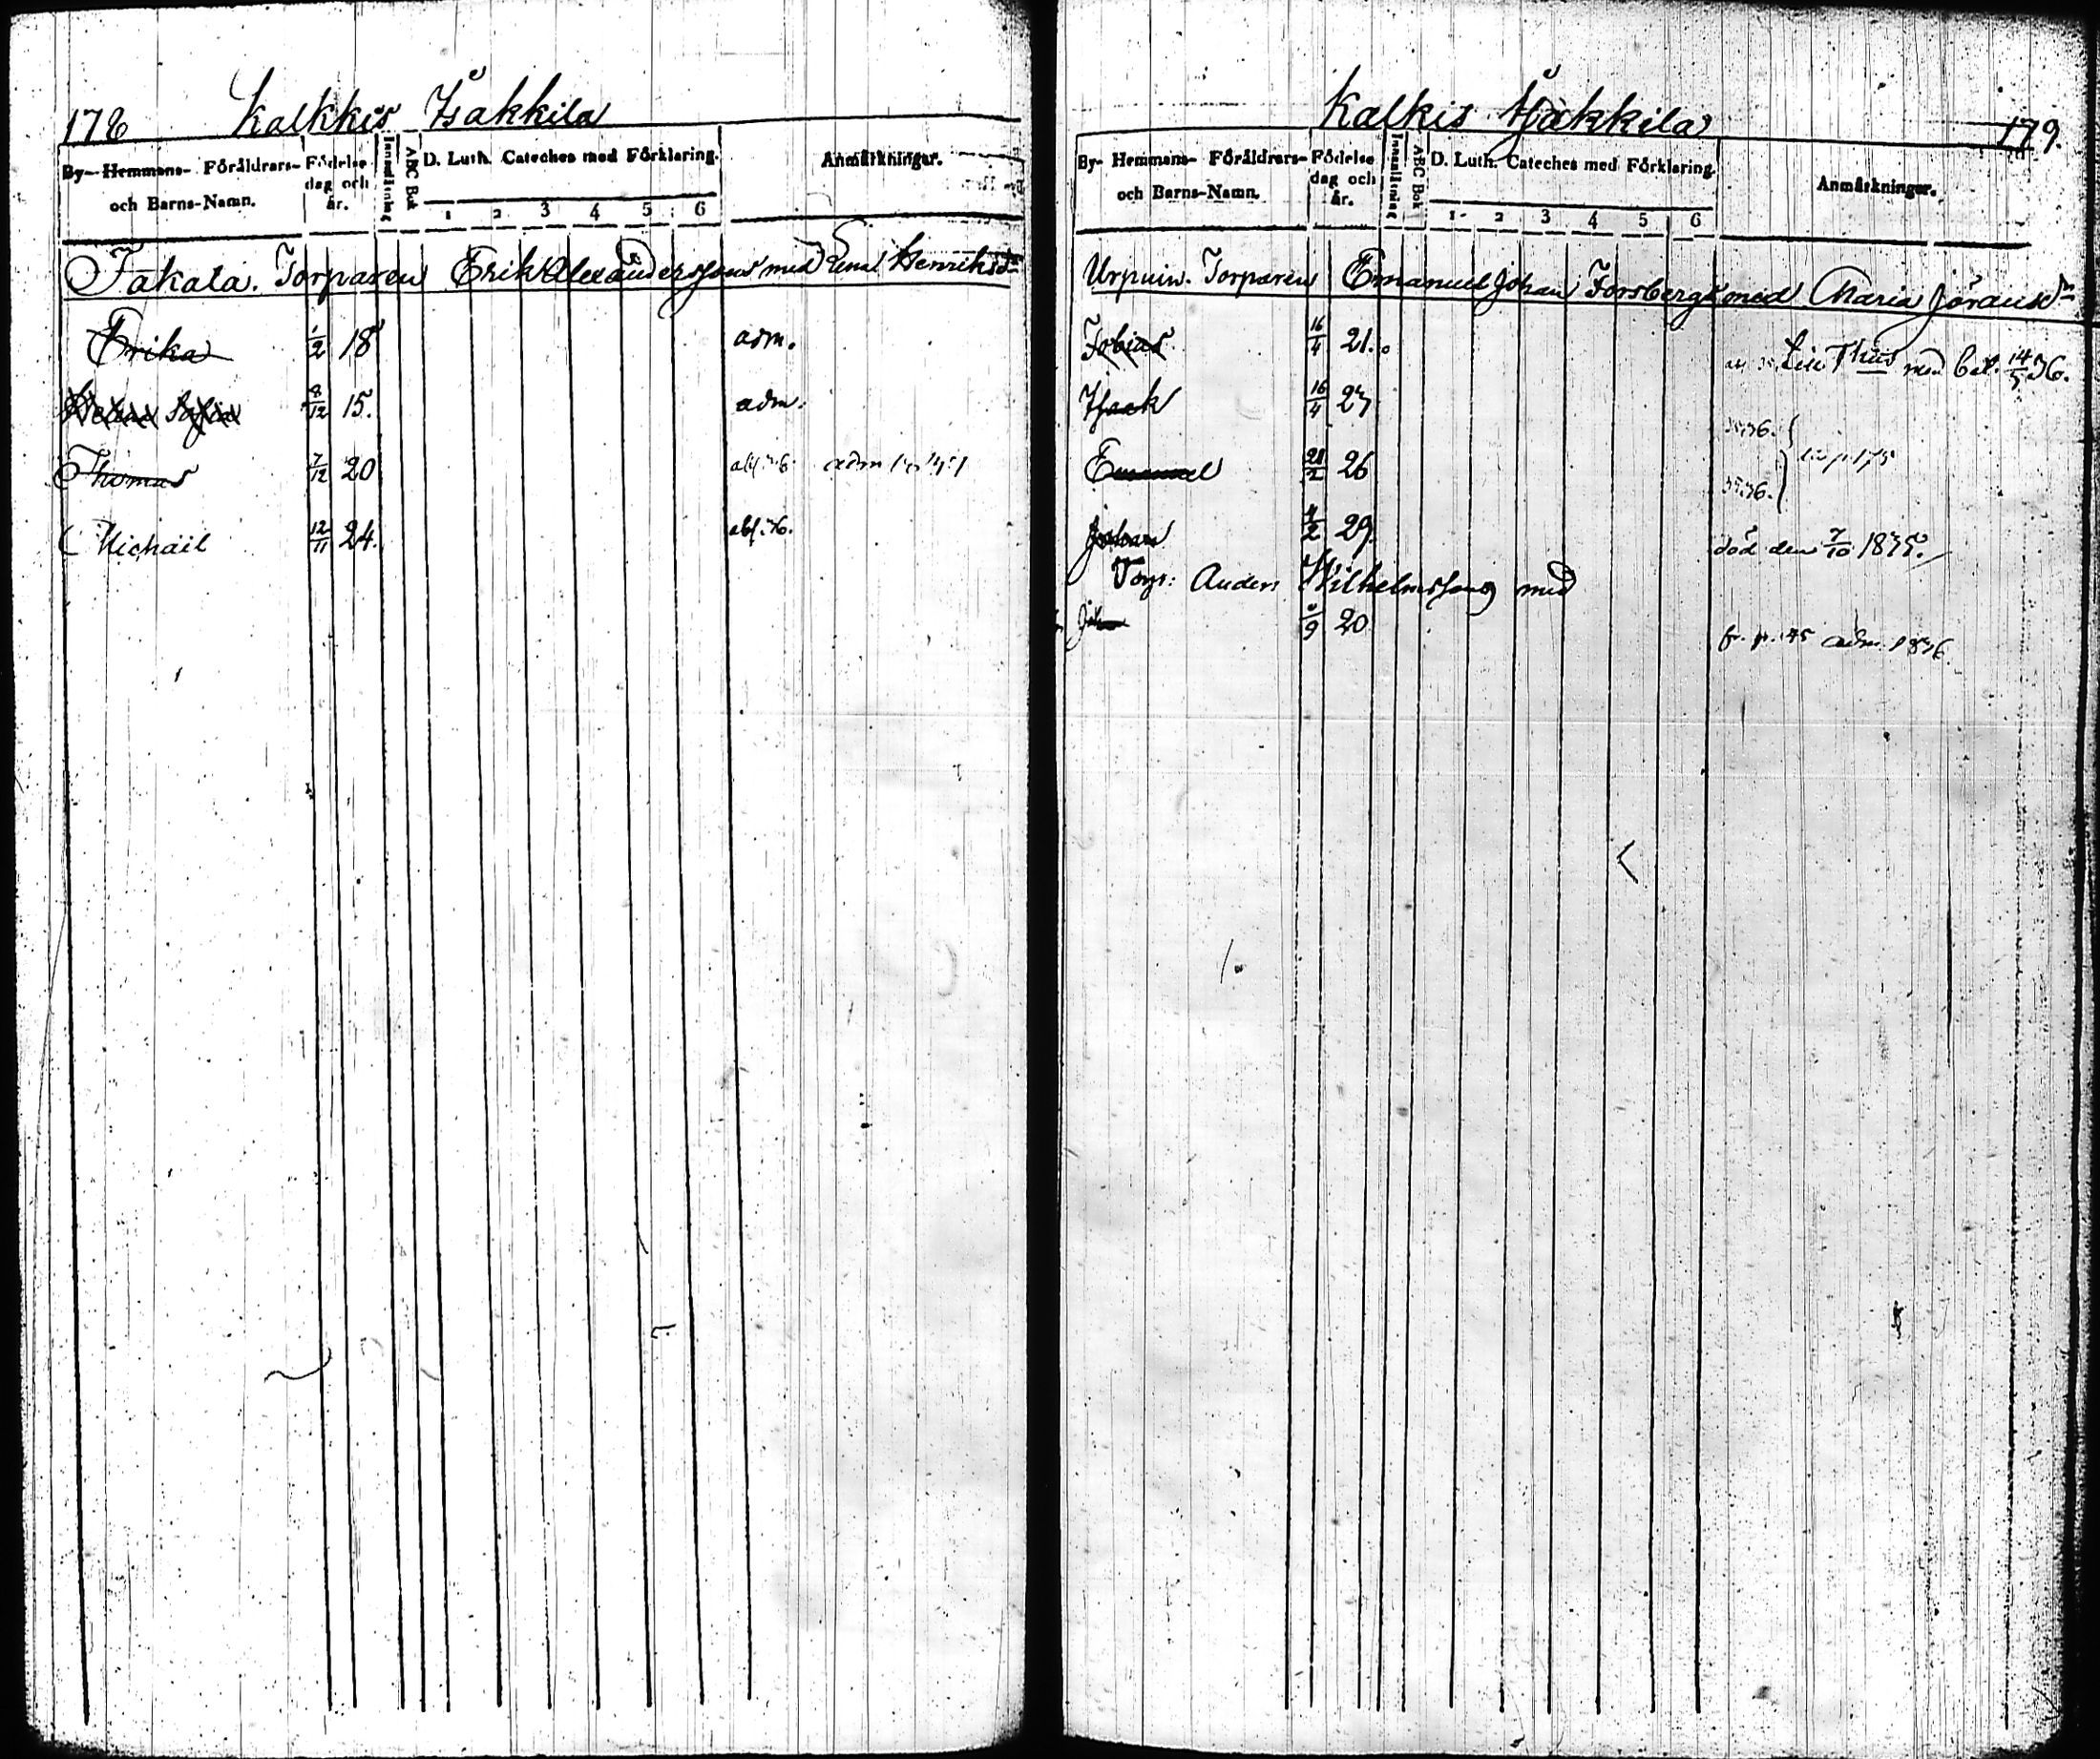 178 Kalkkis Isakkila
By- Hemmans- Föräldrars- och Barns-Namn. Födelse dag och år. Innanläsning ABC Bok D. Luth. Cateches med Förklaring. 1 2 3 4 5 6 Anmärkningar.
Takala. Torparen Erik Alexanderssons med Lena Henriksdr
Erika 1/2 18 adm.
Sofia 8/12 15. adm.
Thomas 7/12 20 abs. 36. adm
Michail 12/11 24. abs. 36.
Kalkis Isakkila 179.
By- Hemmans- Föräldrars- och Barns-Namn. Födelse dag och år. Innanläsning ABC Bok D. Luth. Cateches med Förklaring. 1 2 3 4 5 6 Anmärkningar.
Torparen Emanuel Johan Forsbergs med Maria Jöransdr
Tobias 16/4 21. med bet. 14/5 36.
Isaak 16/4 27 36.
Emanuel 28/2 26 p. 175
36.
Johan 4/2 29. död den 7/10 1835.
Torp: Anders Wilhelmssons med
Joh 9 20 fr. p. 45 adm. 1836.